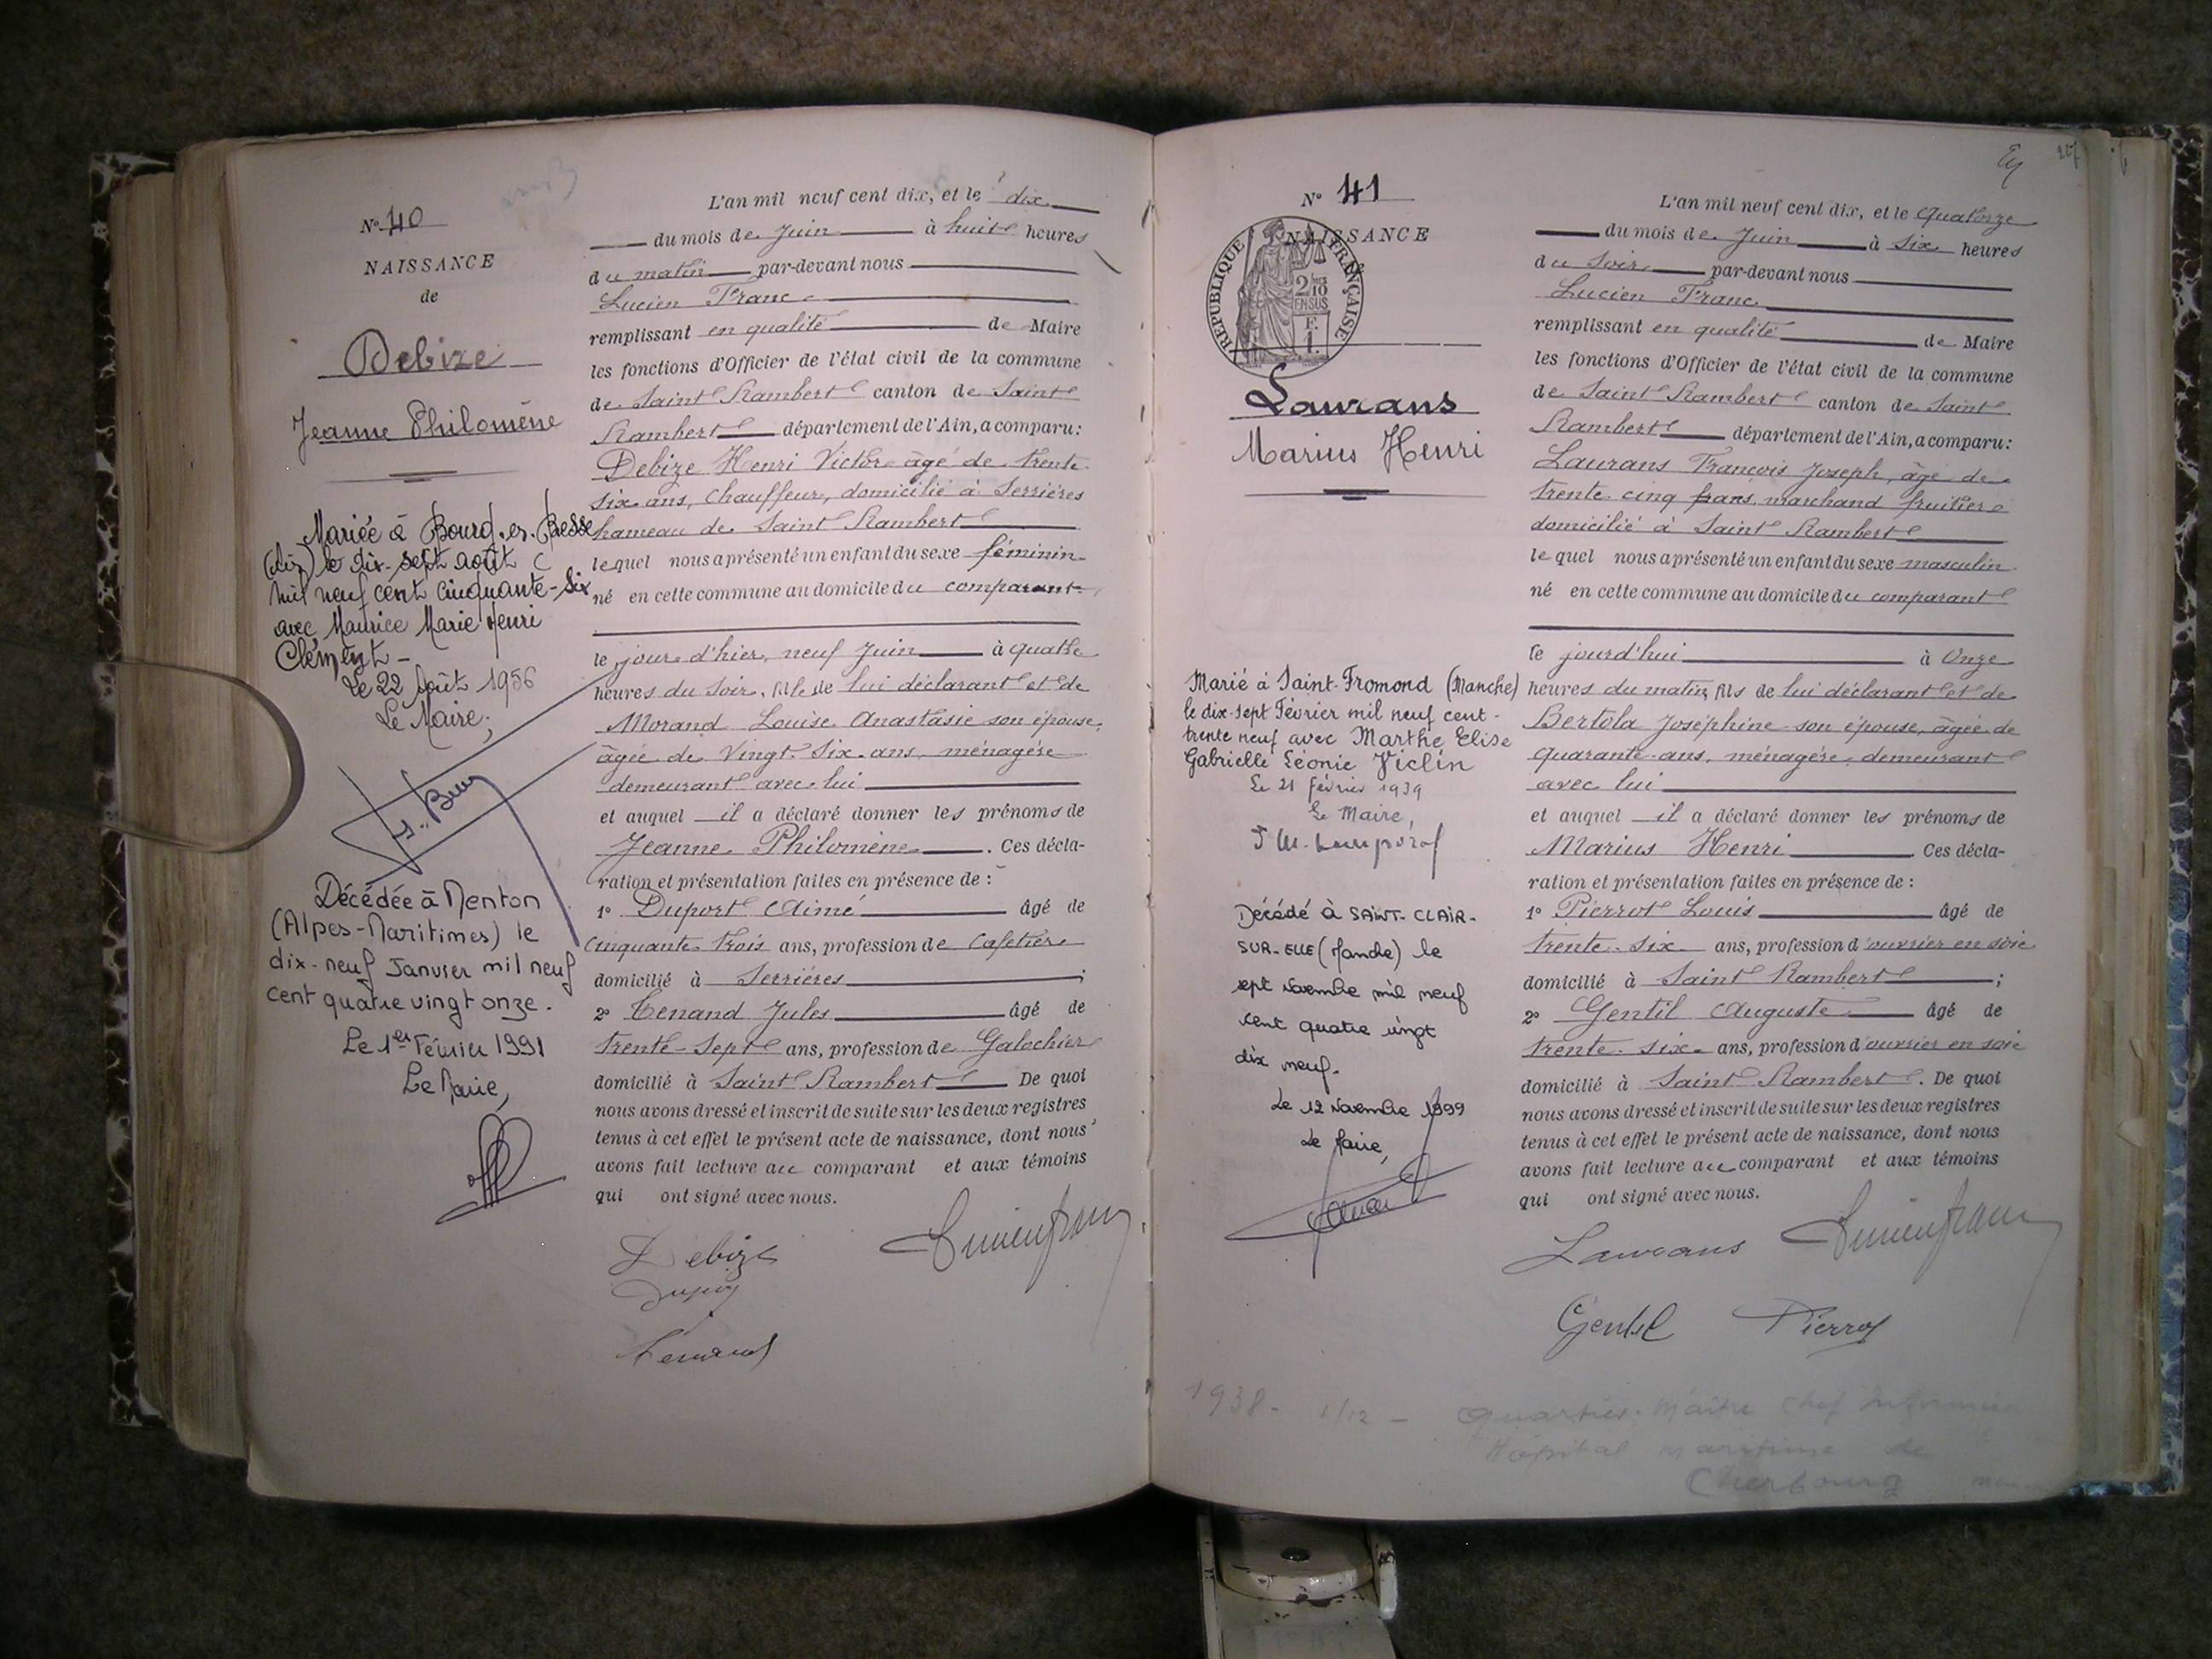 N° 40
NAISSANCE
de
Debize
Jeanne Philomène
Mariée à Bourg-en-Bresse
(Ain) le dix-sept août
mil neuf cent cinquante-six
avec Maurice Marie Henri
Clément -
Le 22 Août 1956
Le Maire,
Décédée à Menton
(Alpes-Maritimes) le
dix-neuf Janvier mil neuf
cent quatre vingt onze.
Le 1er Février 1991
Le Maire,
L'an mil neuf cent dix, et le dix
du mois de Juin à huit heures
du matin par-devant nous
Lucien Franc
remplissant en qualité de Maire
les fonctions d'Officier de l'état civil de la commune
de Saint Rambert canton de Saint
Rambert département de l'Ain, a comparu:
Debize Henri Victor âgé de trente
six ans, chauffeur, domicilié à Serrières
hameau de Saint Rambert
lequel nous a présenté un enfant du sexe féminin
né en cette commune au domicile du comparant
le jour d'hier, neuf Juin à quatre
heures du soir, fille de lui déclarant et de
Morand Louise Anastasie son épouse,
âgée de vingt six ans, ménagère
demeurant avec lui
et auquel il a déclaré donner les prénoms de
Jeanne Philomène. Ces décla-
ration et présentation faites en présence de :
1° Duport Aimé âgé de
cinquante trois ans, profession de cafetier
domicilié à Serrières ;
2° Tenand Jules âgé de
trente-sept ans, profession de Galochier
domicilié à Saint Rambert De quoi
nous avons dressé et inscrit de suite sur les deux registres
tenus à cet effet le présent acte de naissance, dont nous
avons fait lecture au comparant et aux témoins
qui ont signé avec nous.
Debize
Lucien Franc
Tenand
N° 41
NAISSANCE
REPUBLIQUE FRANÇAISE
2/10
EN SUS
F.
1.
Laurans
Marius Henri
Marié à Saint-Fromond (Manche)
le dix-sept Février mil neuf cent-
trente neuf avec Marthe Elise
Gabrielle Léonie Viclin
Le 21 février 1939
Le Maire,
Décédé à SAINT-CLAIR-
SUR-ELLE (Manche) le
sept Novembre mil neuf
cent quatre vingt
dix neuf.
Le 12 Novembre 1999
Le Maire,
L'an mil neuf cent dix, et le quatorze
du mois de Juin à six heures
du soir par-devant nous
Lucien Franc
remplissant en qualité de Maire
les fonctions d'Officier de l'état civil de la commune
de Saint Rambert canton de Saint
Rambert département de l'Ain, a comparu:
Laurans François Joseph, âgé de
trente cinq ans, marchand fruitier
domicilié à Saint Rambert
lequel nous a présenté un enfant du sexe masculin
né en cette commune au domicile du comparant
le jourd'hui à onze
heures du matin, fils de lui déclarant et de
Bertola Joséphine son épouse, âgée de
quarante ans, ménagère, demeurant
avec lui
et auquel il a déclaré donner les prénoms de
Marius Henri Ces décla-
ration et présentation faites en présence de :
1° Pierrot Louis âgé de
trente-six ans, profession d'ouvrier en soie
domicilié à Saint Rambert ;
2° Gentil Auguste âgé de
trente-six ans, profession d'ouvrier en soie
domicilié à Saint Rambert. De quoi
nous avons dressé et inscrit de suite sur les deux registres
tenus à cet effet le présent acte de naissance, dont nous
avons fait lecture au comparant et aux témoins
qui ont signé avec nous.
Laurans Lucien Franc
Gentil Pierrot
1938 - 1/12 - Quartier-Maître Chef Infirmier
Hôpital maritime de
Cherbourg